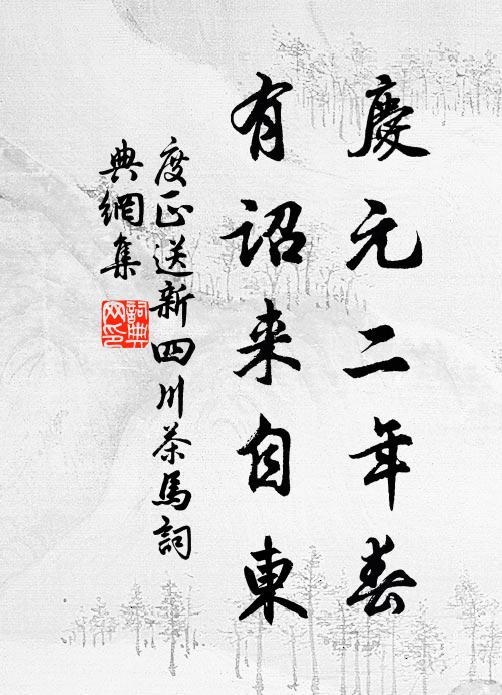 慶元二年春
有詔来自東
度正送新四川茶馬詞
典網集
詞典
网印